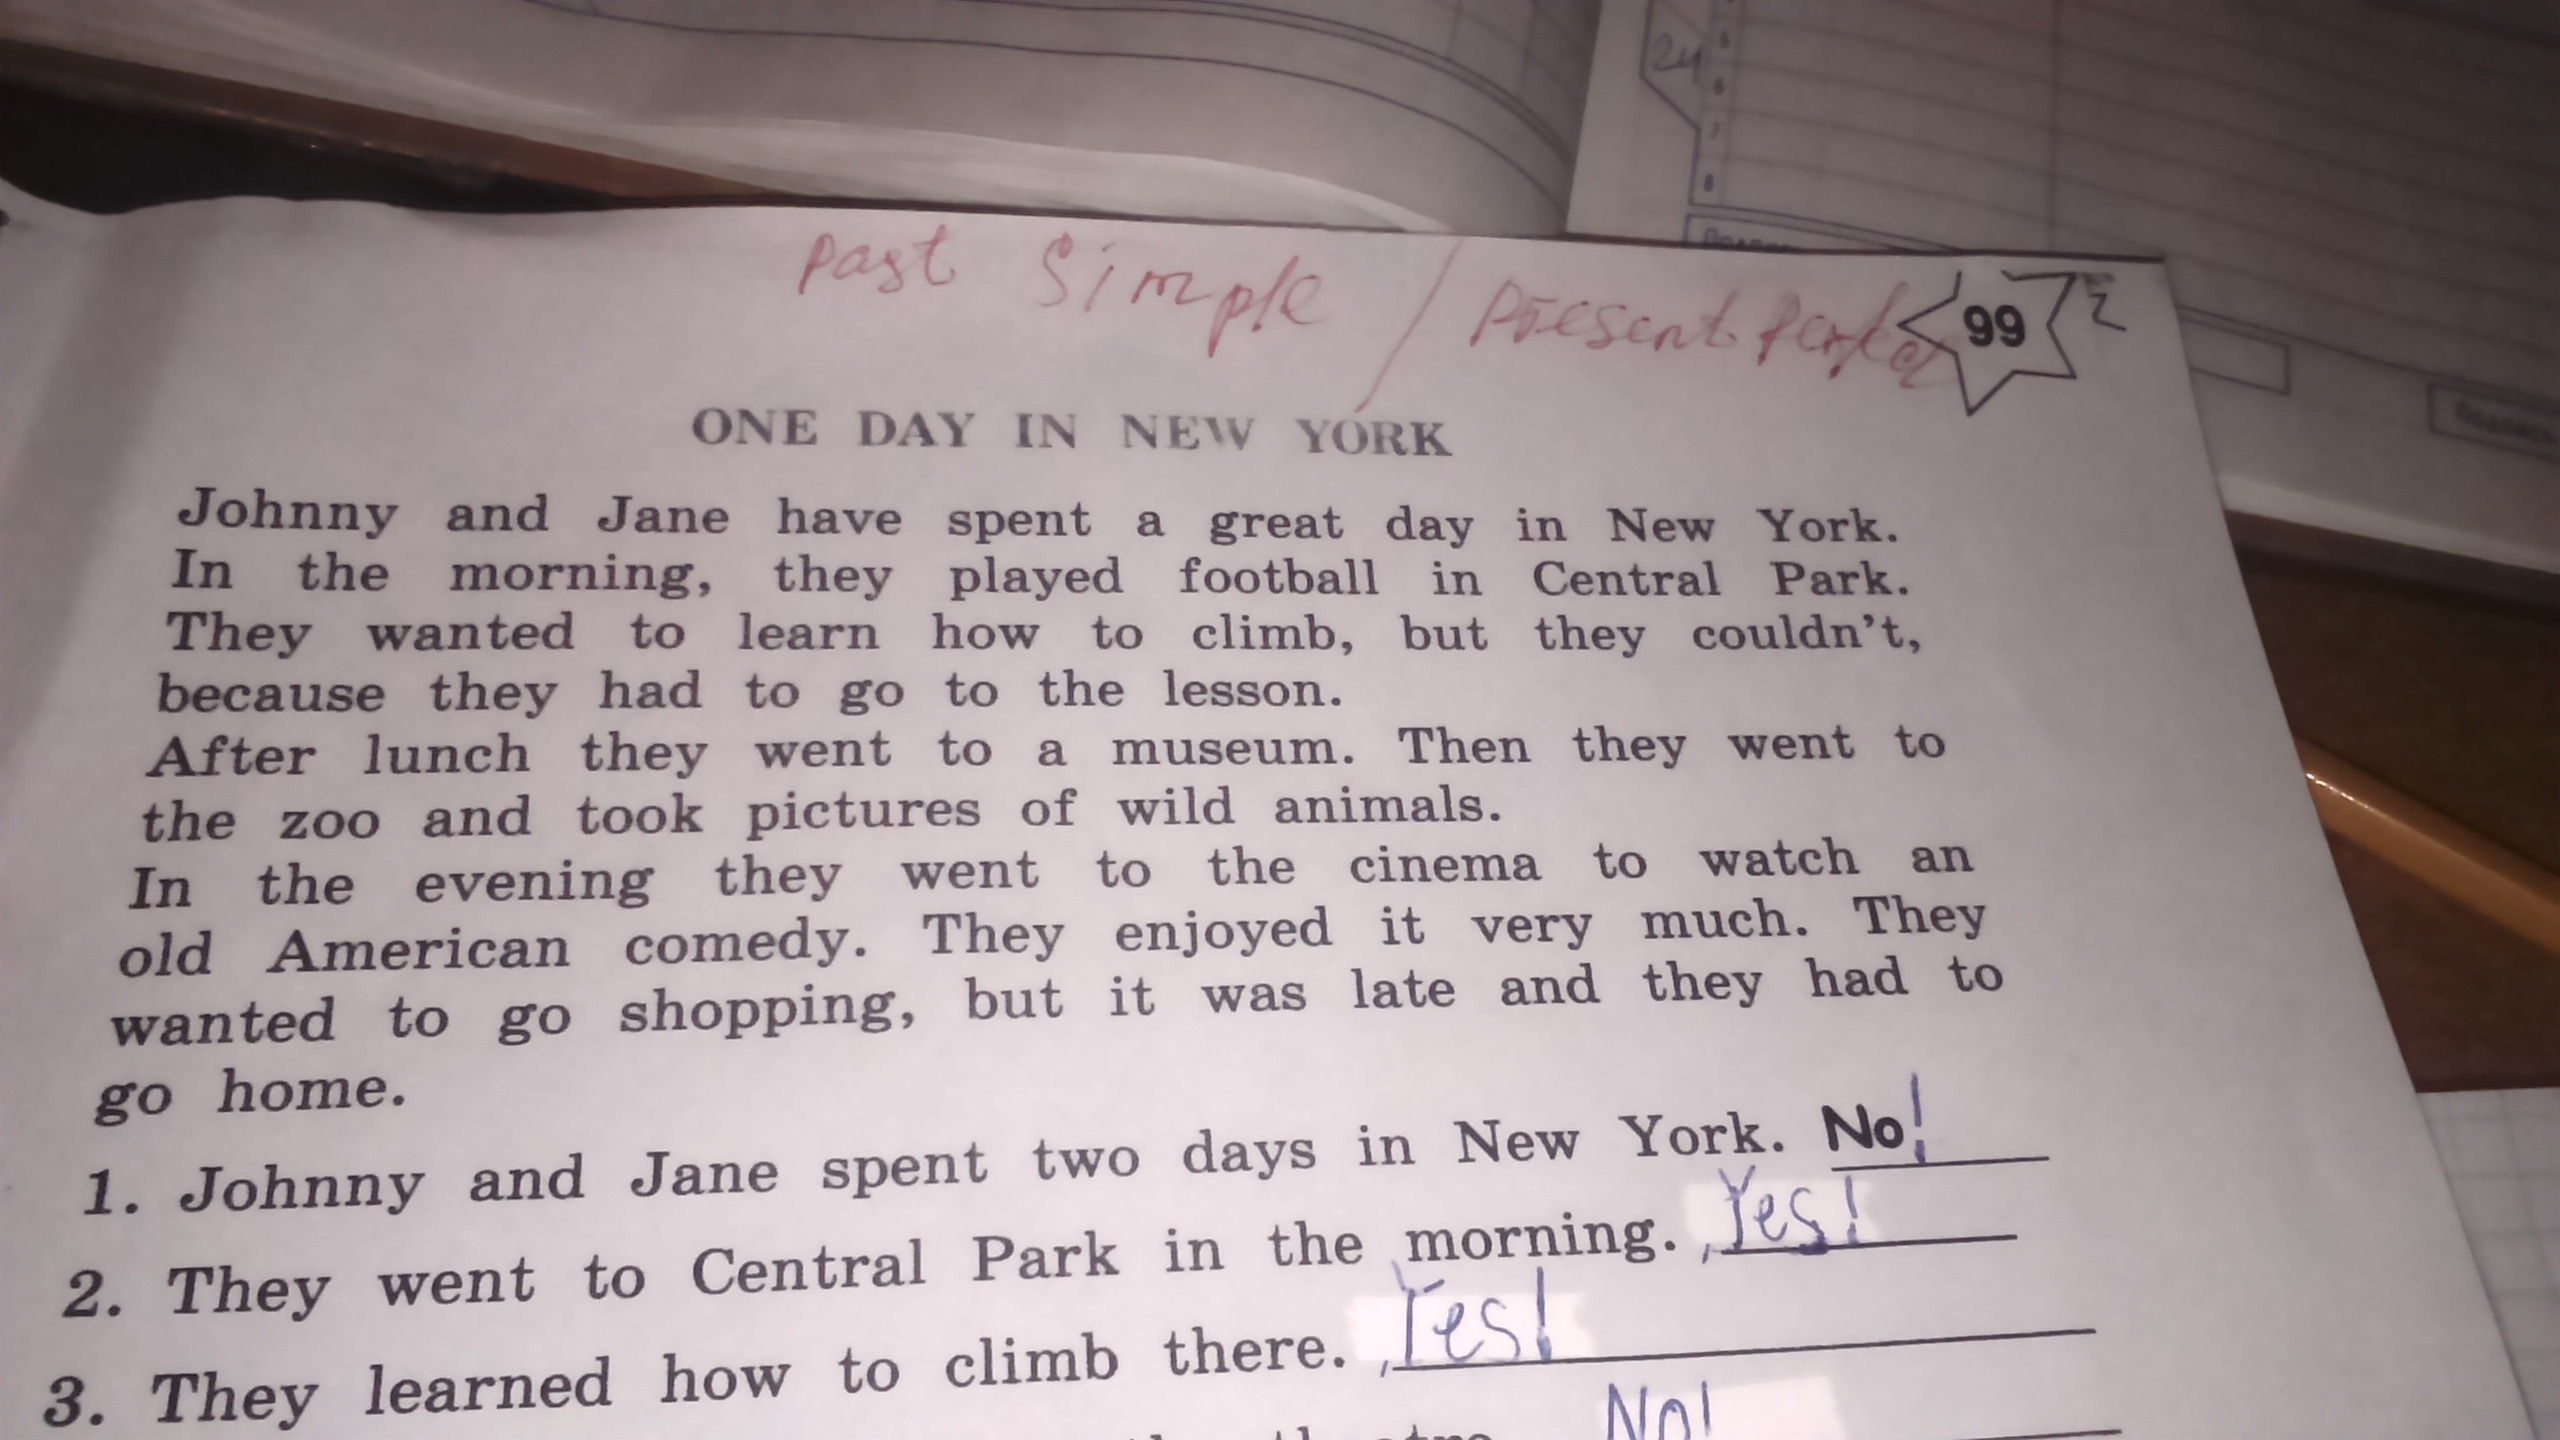 24
5
6
7
8
Past Simple / Present Perfect
99
ONE DAY IN NEW YORK
Johnny and Jane have spent a great day in New York.
In the morning, they played football in Central Park.
They wanted to learn how to climb, but they couldn't,
because they had to go to the lesson.
After lunch they went to a museum. Then they went to
the zoo and took pictures of wild animals.
In the evening they went to the cinema to watch an
old American comedy. They enjoyed it very much. They
wanted to go shopping, but it was late and they had to
go home.
1. Johnny and Jane spent two days in New York. No!
2. They went to Central Park in the morning. Yes!
3. They learned how to climb there. Yes!
No!